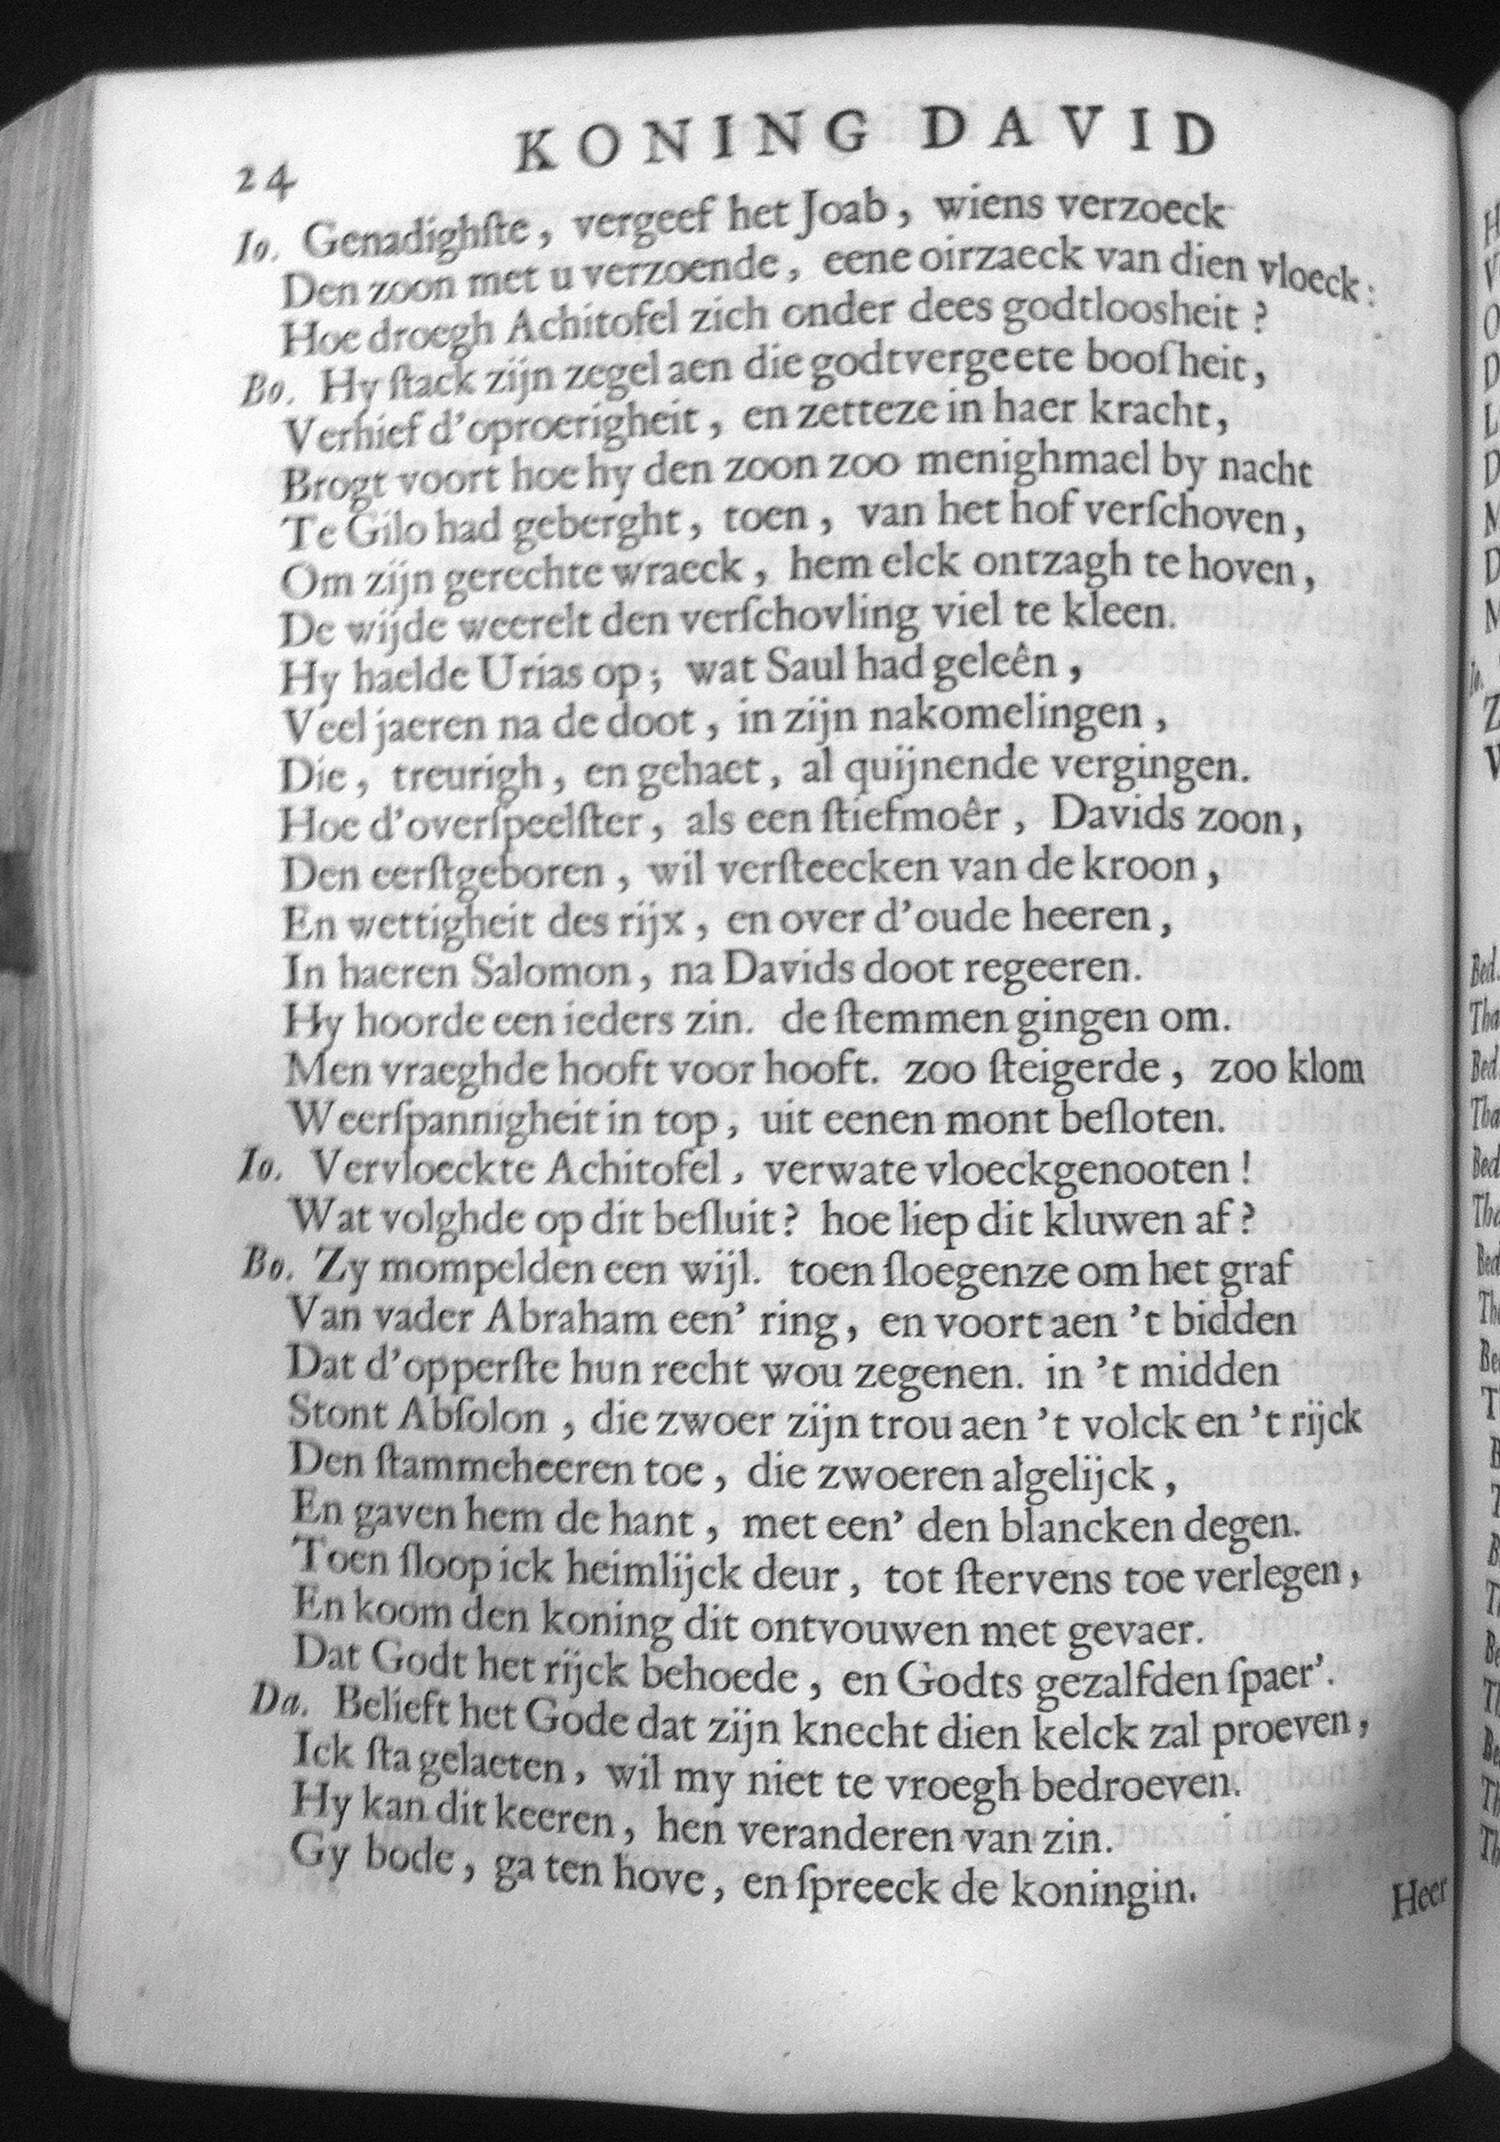 24 KONING DAVID
Io. Genadighſte, vergeef het Joab, wiens verzoeck
Den zoon met u verzoende, eene oirzaeck van dien vloeck:
Hoe droegh Achitofel zich onder dees godtloosheit?
Bo. Hy ſtack zijn zegel aen die godtvergeete boosheit,
Verhief d'oproerigheit, en zetteze in haer kracht,
Brogt voort hoe hy den zoon zoo menighmael by nacht
Te Gilo had geberght, toen, van het hof verſchoven,
Om zijn gerechte wraeck, hem elck ontzagh te hoven,
De wijde weerelt den verſchovling viel te kleen.
Hy haelde Urias op; wat Saul had geleên,
Veel jaeren na de doot, in zijn nakomelingen,
Die, treurigh, en gehaet, al quijnende vergingen.
Hoe d'overſpeelſter, als een ſtiefmoêr, Davids zoon,
Den eerſtgeboren, wil verſteecken van de kroon,
En wettigheit des rijx, en over d'oude heeren,
In haeren Salomon, na Davids doot regeeren.
Hy hoorde een ieders zin. de ſtemmen gingen om.
Men vraeghde hooft voor hooft. zoo ſteigerde, zoo klom
Weerſpannigheit in top, uit eenen mont beſloten.
Io. Vervloeckte Achitofel, verwate vloeckgenooten!
Wat volghde op dit beſluit? hoe liep dit kluwen af?
Bo. Zy mompelden een wijl. toen ſloegenze om het graf
Van vader Abraham een' ring, en voort aen 't bidden
Dat d'opperſte hun recht wou zegenen. in 't midden
Stont Abſolon, die zwoer zijn trou aen 't volck en 't rijck
Den ſtammeheeren toe, die zwoeren algelijck,
En gaven hem de hant, met een' den blancken degen.
Toen ſloop ick heimlijck deur, tot ſtervens toe verlegen,
En koom den koning dit ontvouwen met gevaer.
Dat Godt het rijck behoede, en Godts gezalfden ſpaer'.
Da. Belieft het Gode dat zijn knecht dien kelck zal proeven,
Ick ſta gelaeten, wil my niet te vroegh bedroeven.
Hy kan dit keeren, hen veranderen van zin.
Gy bode, ga ten hove, en ſpreeck de koningin.
Heer